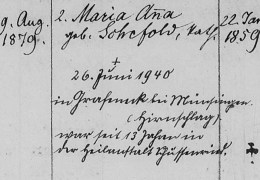 9. Aug. 2. Maria Aña 22. Jan
1879. geb. Schefold, kath. 1859
+
26. Juni 1940
in Grafeneck bei Münsingen
(Hirnschlag).
war seit 13 Jahren in
der Heilanstalt Schussenried.